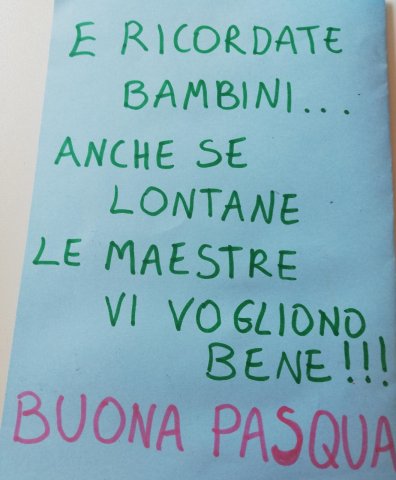 E RICORDATE
BAMBINI...
ANCHE SE
LONTANE
LE MAESTRE
VI VOGLIONO
BENE!!!
BUONA PASQUA